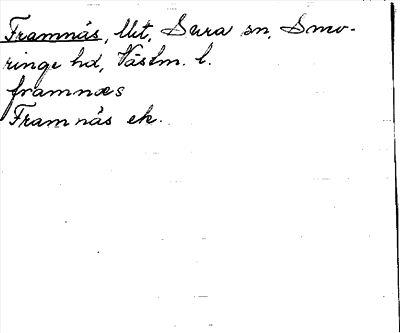 Framnäs, Utt, Sura sn, Snev-
ringe hd, Västm. l.
framnæs
Framnäs ek.